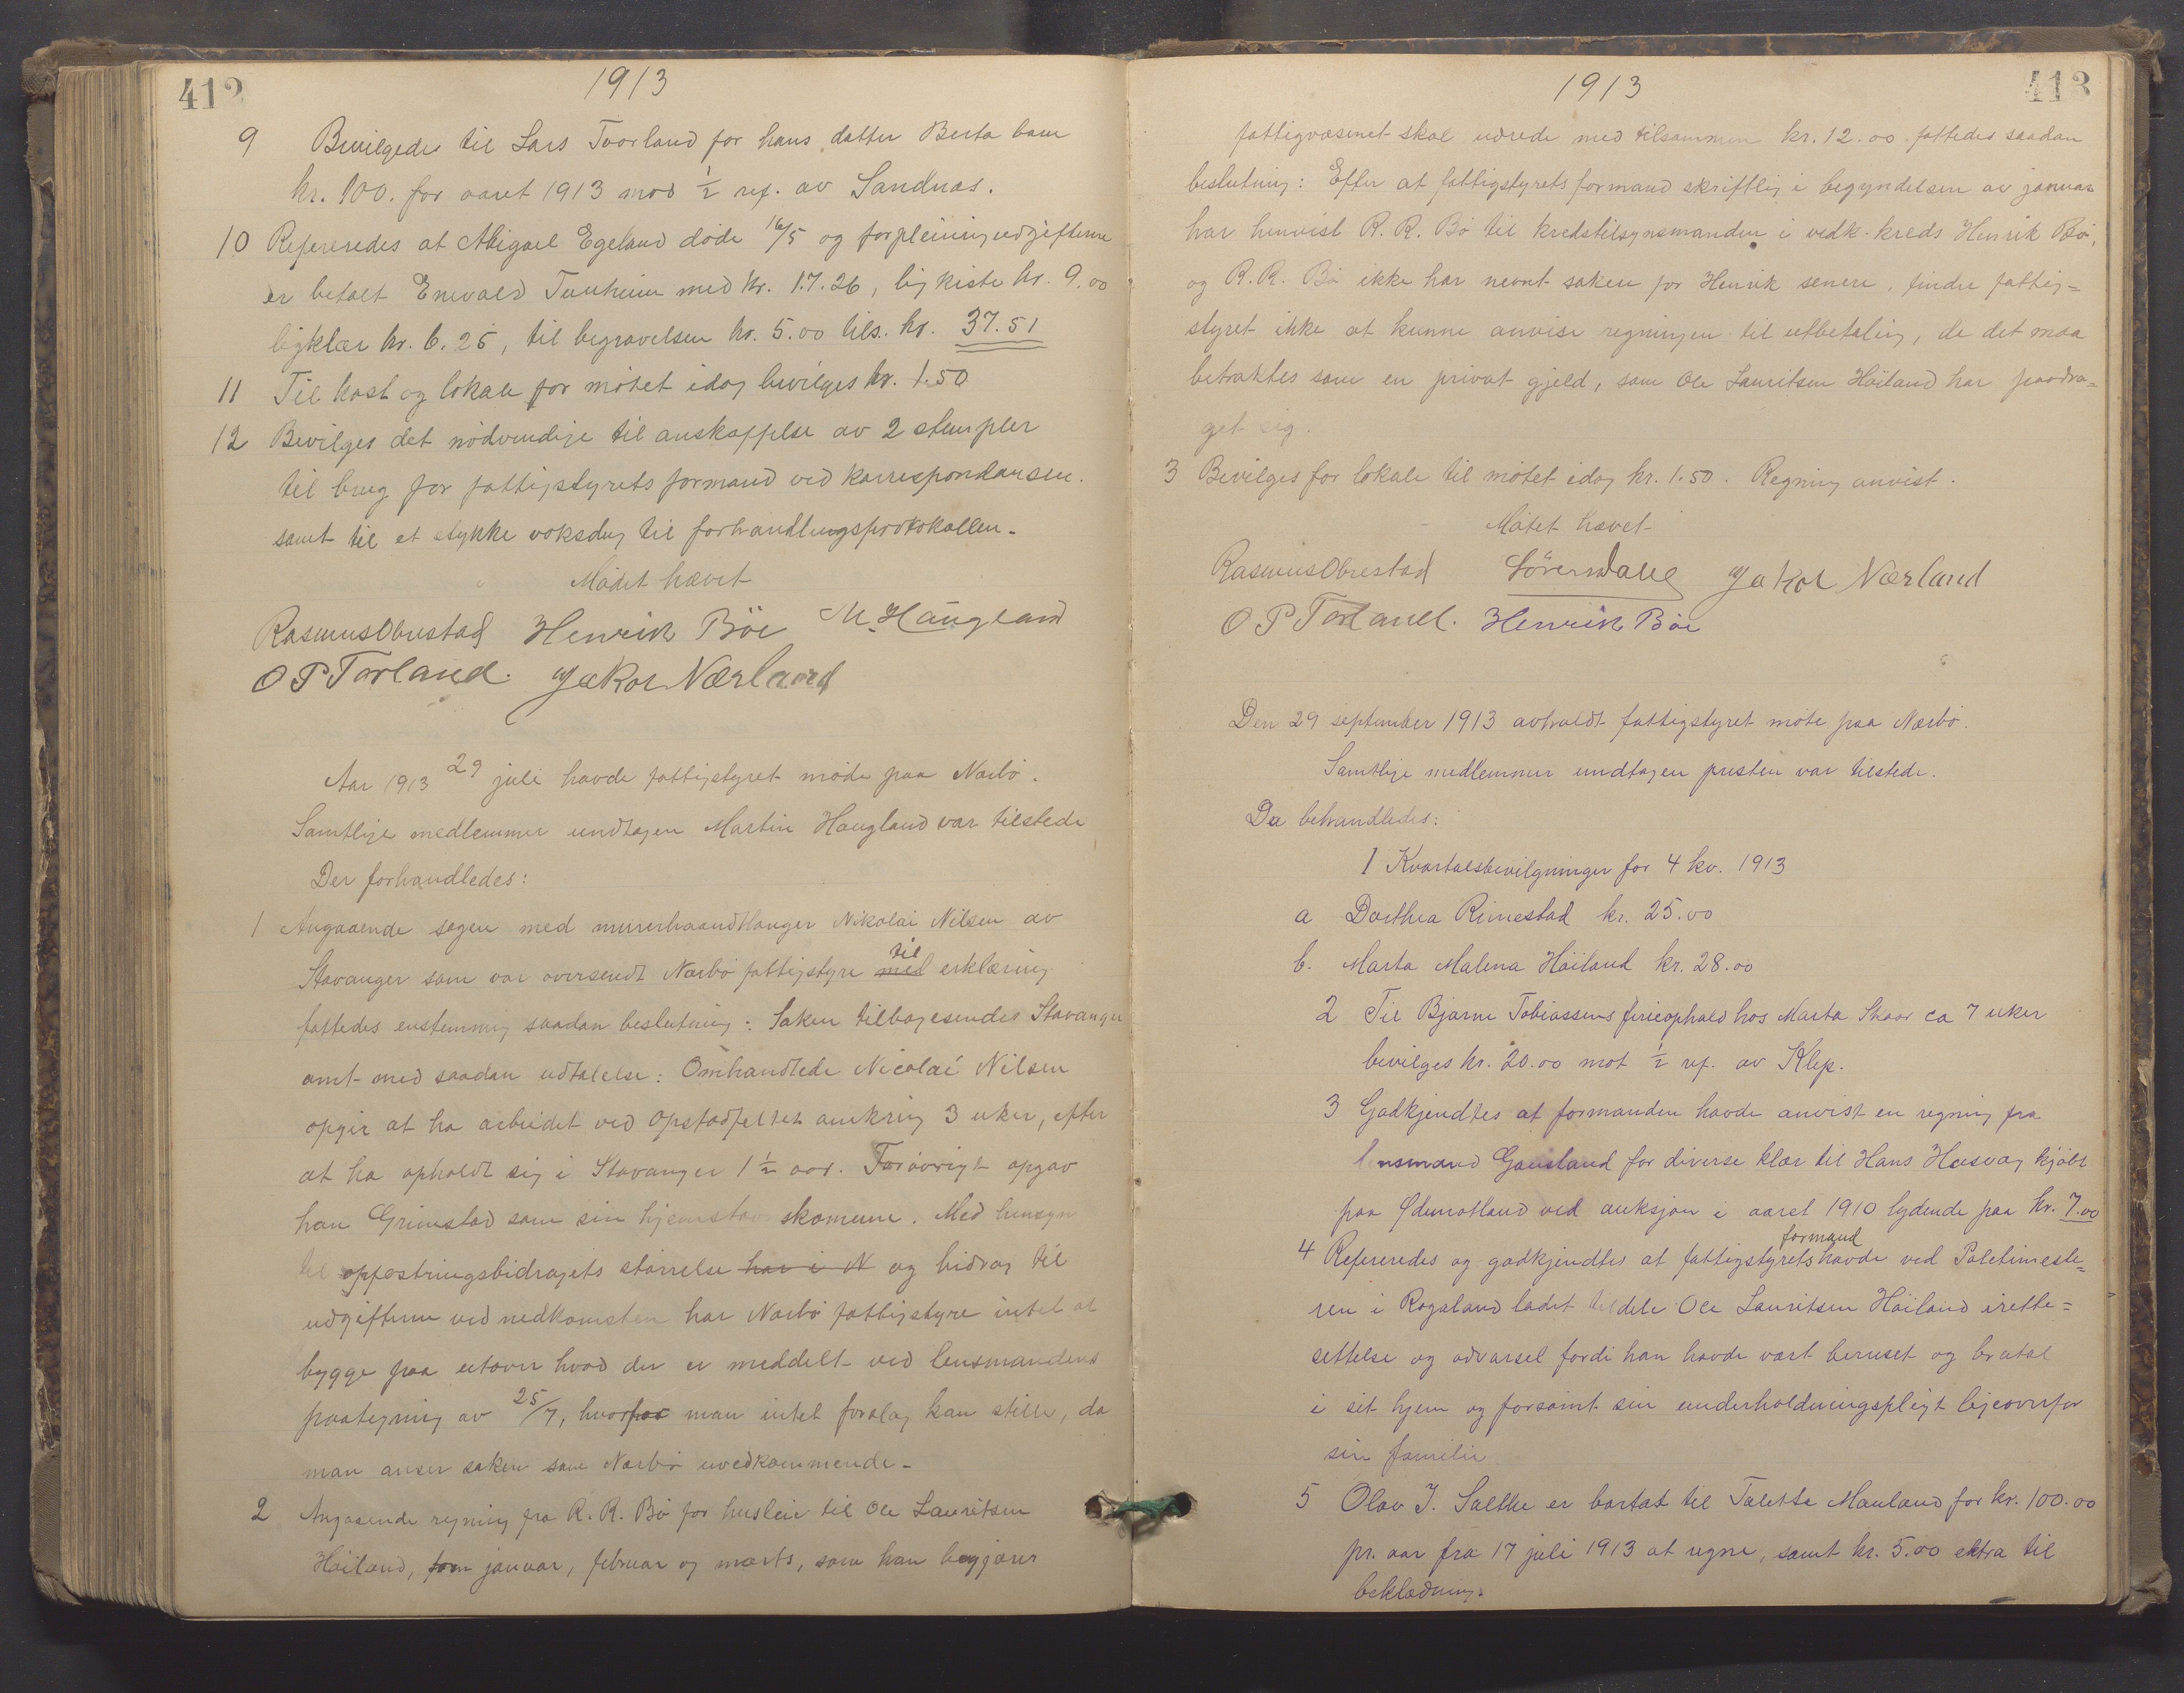 412
1913
9 Bevilgedes til Lars Torland for hans datter Berta barn
kr. 100. for aaret 1913 mod 1/2 ref. av Sandnæs.
10 Refereredes at Abigael Egeland døde 16/5 og forpleiningudgifterne
er betalt Enevald Tunheim med kr. 17.26, ligkiste kr. 9.00
ligklær kr. 6.25, til begravelsen kr. 5.00 tils. kr. 37.51
11 Til kost og lokale for møtet idag bevilges kr. 1.50
12 Bevilges det nødvendige til anskaffelse av 2 stempler
til brug for fattigstyrets formand ved korrespondansen.
samt til et stykke voksdug til forhandlingsprotokollen.
Mødet hævet
Rasmus Obrestad Henrik Böe M. Haugland
O P Torland. Jakob Nærland
Aar 1913 29 juli havde fattigstyret møde paa Nærbø.
Samtlige medlemmer undtagen Martin Haugland var tilstede
Der forhandledes:
1 Angaaende sagen med murerhaandtlanger Nikolai Nilsen av
Stavanger som var oversendt Nærbø fattigstyre med til erklæring
fattedes enstemmig saadan beslutning: Saken tilbagesendes Stavanger
amt med saadan udtalelse: Omhandlede Nicolai Nilsen
opgir at ha arbeidet ved Opstadfeltet omkring 3 uker, efter
at ha opholdt sig i Stavanger 1 1/2 aar. Forøvrigt opgav
han Grimstad som sin hjemstavnskomune. Med hensyn
til opfostringsbidragets størrelse har i N og bidrag til
udgifterne ved nedkomsten har Nærbø fattigstyre intet at
bygge paa utover hvad der er meddelt ved lensmandens
paategning av 25/7, hvorfor man intet forslag kan stille, da
man anser saken som Nærbø uvedkommende.
2 Angaaende regning fra R. R. Bø for husleie til Ole Lauritsen
Høiland, for januar, februar og marts, som han begjærer
413
1913
fattigvæsenet skal udrede med tilsammen kr. 12.00 fattedes saadan
beslutning: Efter at fattigstyrets formand skriftlig i begyndelsen av januar
har henvist R. R. Bø til kredstilsynsmanden i vedk. kreds Henrik Bø,
og R. R. Bø ikke har nevnt saken for Henrik senere, findes fattig=
styret ikke at kunne anvise regningen til utbetaling, da det maa
betraktes som en privat gjeld, som Ole Lauritsen Høiland har paadra=
get sig.
3 Bevilges for lokale til møtet idag kr. 1.50. Regning anvist.
Møtet hævet
Rasmus Obrestad Sören Jakob Nærland
O P Torland. Henrik Böe
Den 29 september 1913 avholdt fattigstyret møte paa Nærbø.
Samtlige medlemmer undtagen presten var tilstede.
Da behandledes:
1 Kvartalsbevilgninger for 4 kv. 1913
a Dorthea Rimestad kr. 25.00
b. Marta Malena Höiland kr. 28.00
2 Til Bjarne Tobiassens ferieophold hos Marta Skaar ca 7 uker
bevilges kr. 20.00 mot 1/2 ref. av Klep.
3 Godkjendtes at formanden havde anvist en regning fra
lensmand Gausland for diverse klær til Hans Husvæg kjøbt
paa Ødemotland ved auksjon i aaret 1910 lydende paa kr. 7.00
4 Refereredes og godkjendtes at fattigstyrets formand havde ved Politimeste=
ren i Rogaland ladet tildele Ole Lauritsen Høiland irette=
settelse og advarsel fordi han havde vært beruset og brutal
i sit hjem og forsømt sin underholdningspligt ligeoverfor
sin familie
5 Olav J. Salthe er bortsat til Taletta Mauland for kr. 100.00
pr. aar fra 17 juli 1913 at regne, samt kr. 5.00 ektra til
beklædning.